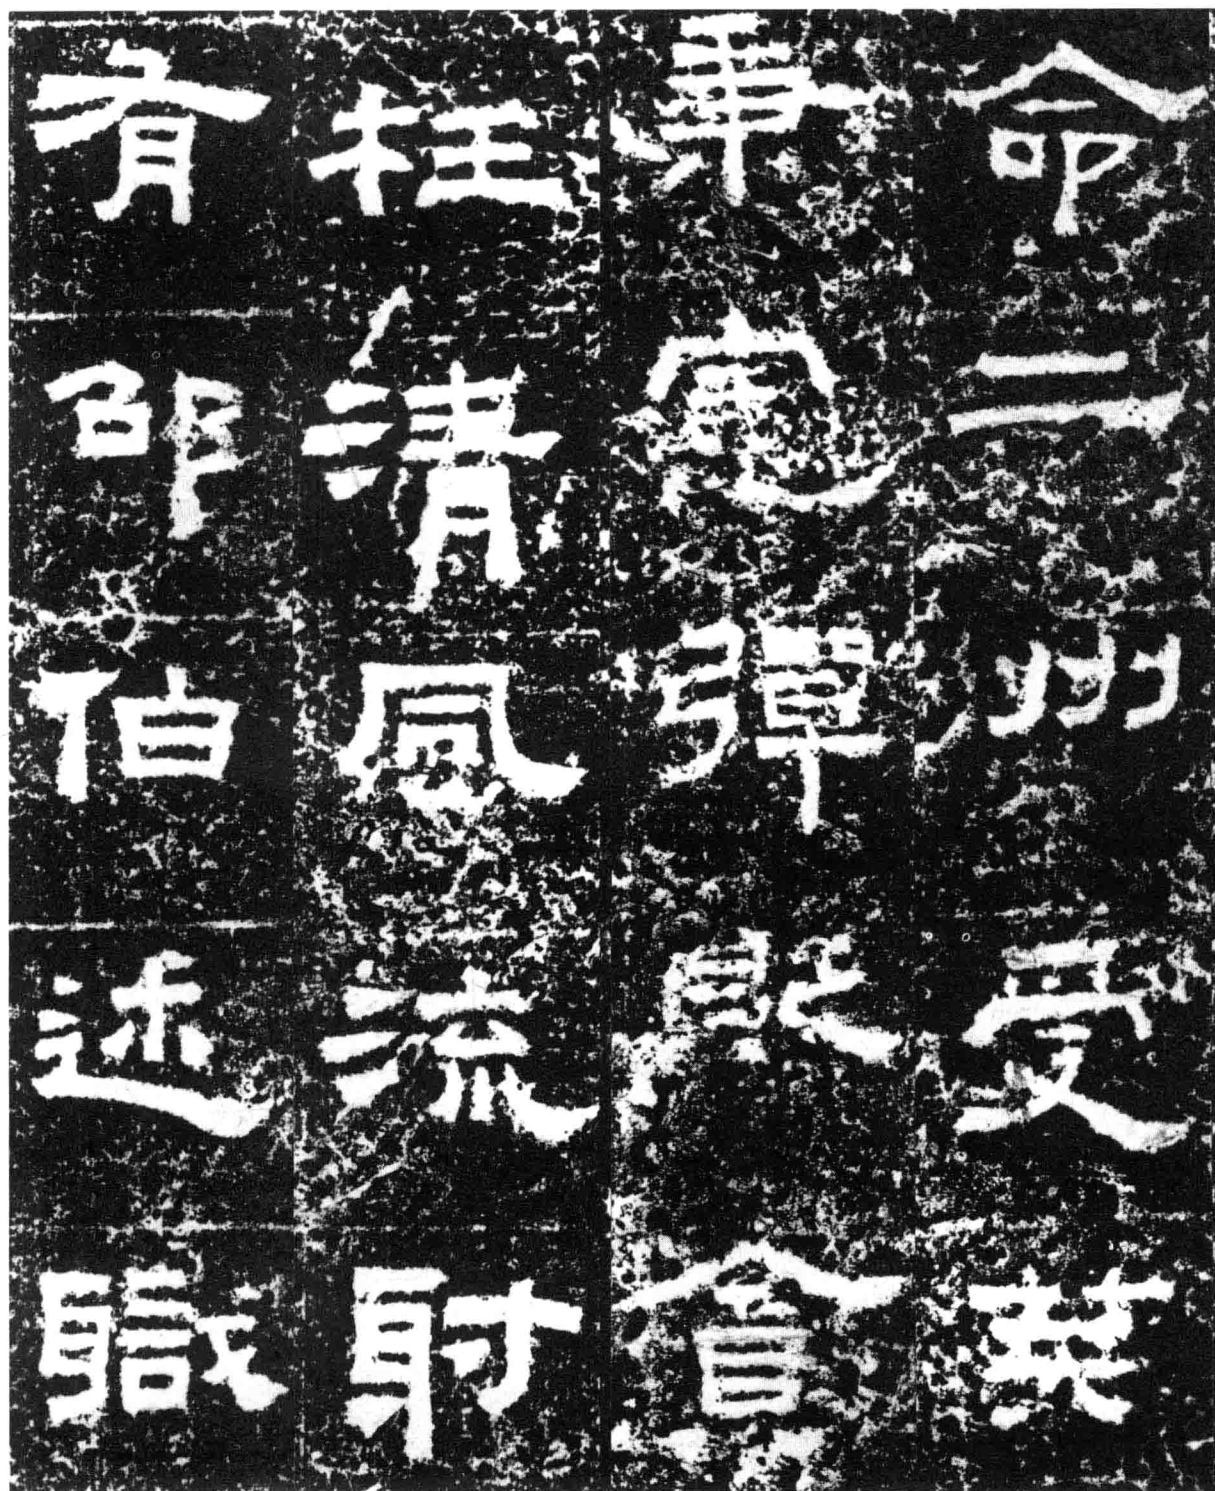 命二州受莢
秉憲彈貶貪
枉清風流射
有邵伯述職